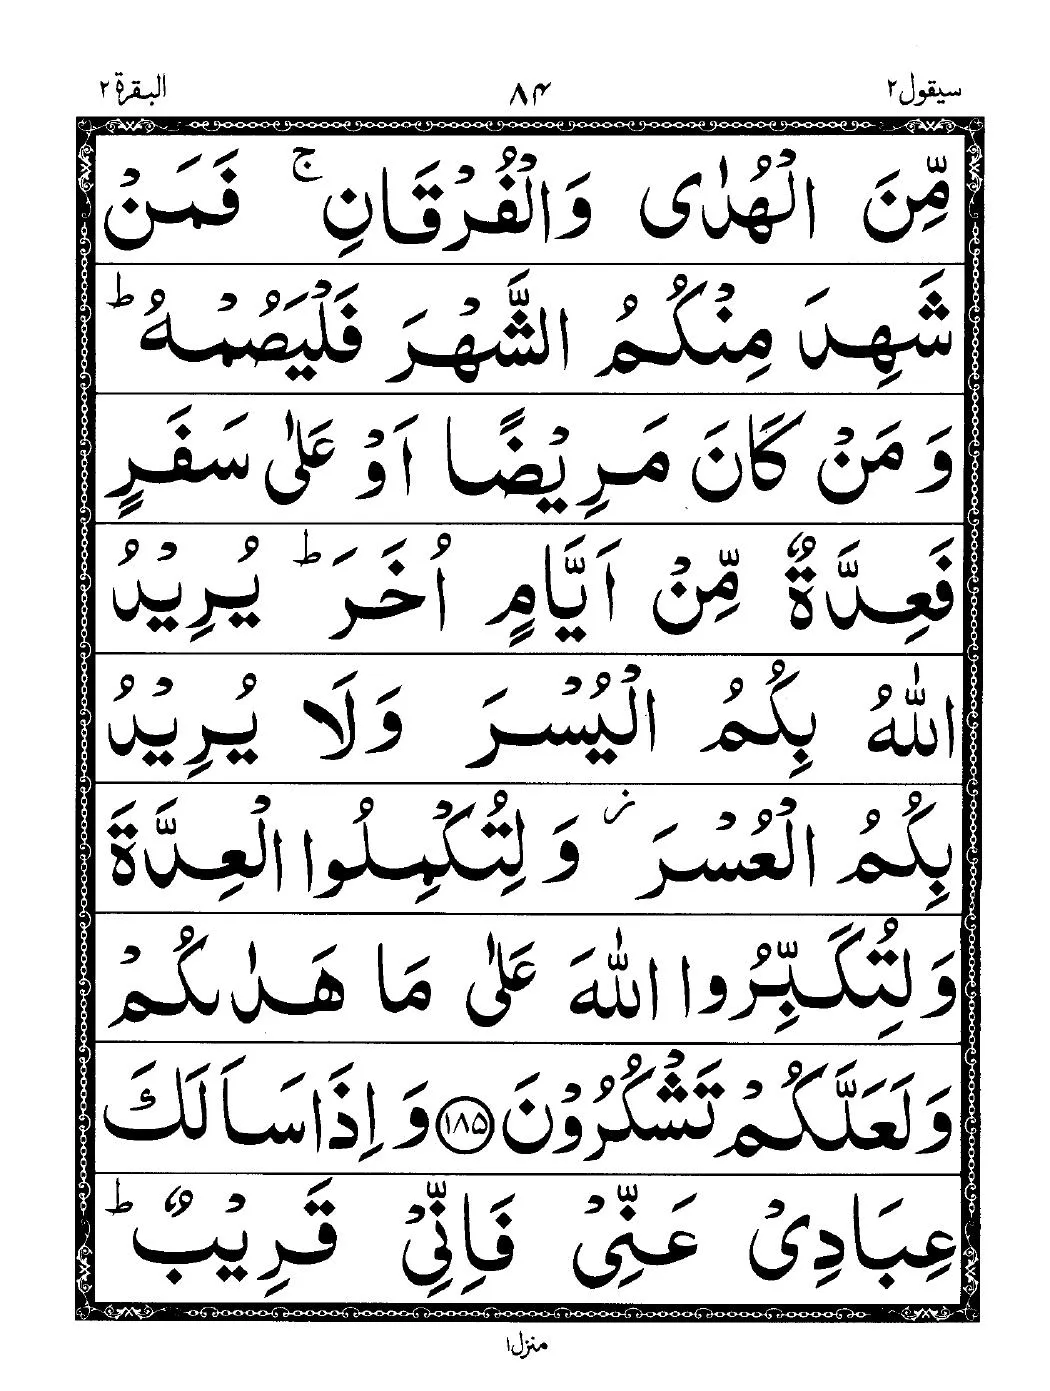 سيقول ٢ ٨٤ البقرة ٢
مِّنَ الْهُدٰى وَالْفُرْقَانِ ۚ فَمَنْ
شَهِدَ مِنْكُمُ الشَّهْرَ فَلْيَصُمْهُ ؕ
وَ مَنْ كَانَ مَرِيْضًا اَوْ عَلٰى سَفَرٍ
فَعِدَّةٌ مِّنْ اَيَّامٍ اُخَرَ ؕ يُرِيْدُ
اللّٰهُ بِكُمُ الْيُسْرَ وَلَا يُرِيْدُ
بِكُمُ الْعُسْرَ ؗ وَ لِتُكْمِلُوا الْعِدَّةَ
وَلِتُكَبِّرُوا اللّٰهَ عَلٰى مَا هَدٰىكُمْ
وَلَعَلَّكُمْ تَشْكُرُوْنَ ۝۱۸۵ وَ اِذَا سَاَلَكَ
عِبَادِيْ عَنِّيْ فَاِنِّيْ قَرِيْبٌ ؕ
منزل ١